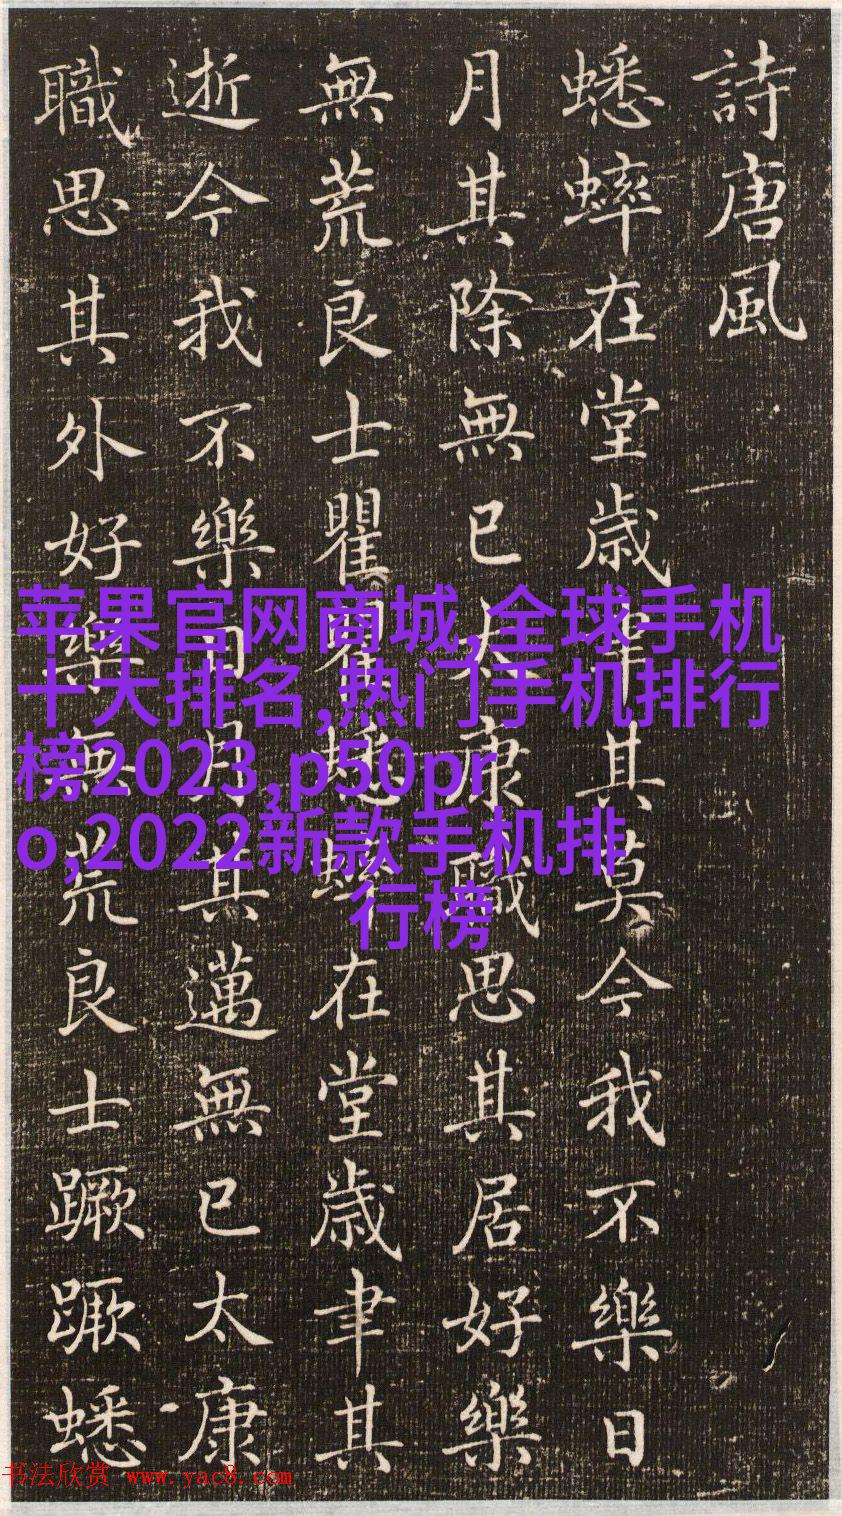 詩唐風
蟋蟀在堂歲聿其莫今我不樂日
月其除無已太康職思其居好樂
無荒良士瞿瞿蟋蟀在堂歲聿其
逝今我不樂日月其邁無已太康
職思其外好樂無荒良士蹶蹶蟋
苹果官网商城,全球手机
十大排名,热门手机排行
榜2023,p50pr
o,2022新款手机排
行榜
书法欣赏 www.yac8.com